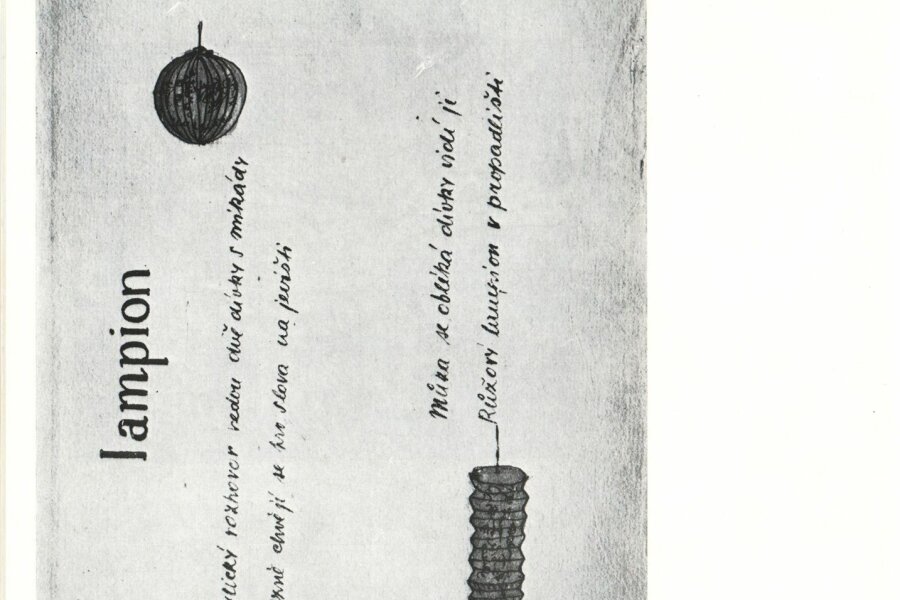 lampion
rozhovor vedou dvě dívky s mikády
chvějí se hrn slova na jevišti
Můra se obléká dívky vidí ji
Růžový lampion v propadlišti